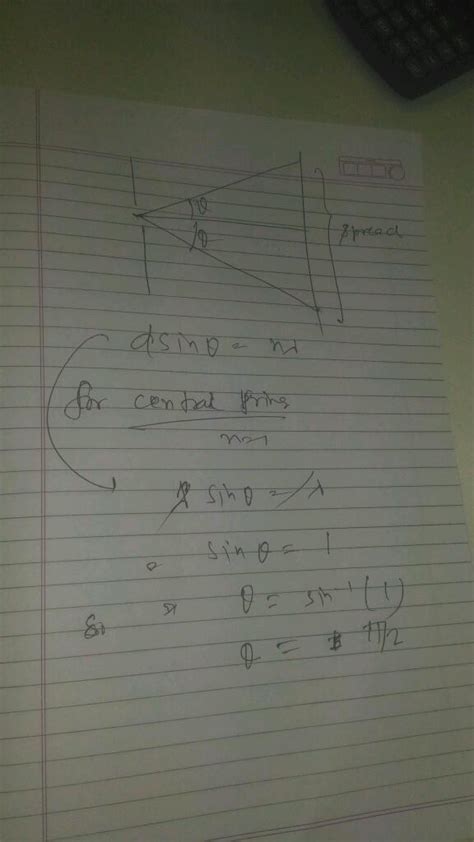 θ
θ
spread
d sinθ = nλ
for central fring
n=1
λ sinθ = λ
sinθ = 1
θ = sin⁻¹(1)
θ = π/2